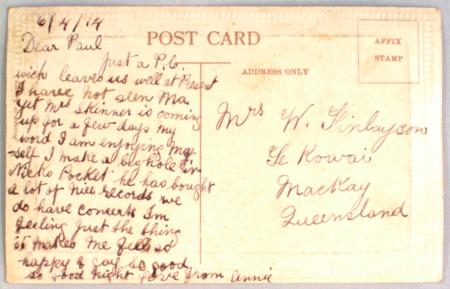 6/4/14
Dear Paul
just a P.C.
wich leaves us well at Present
I have not seen Ma
yet Mrs Skinner is coming
up for a few days my
word I am enjoying my
self I make a big hole in
Nicks Pocket he has bought
a lot of nice records we
do have concerts Im
feeling just the thing
it makes me feel so
happy & gay so good
so good night love from Annie
POST CARD
ADDRESS ONLY
AFFIX
STAMP
Mrs W. Finlayson
Te Kowai
MacKay
Queensland